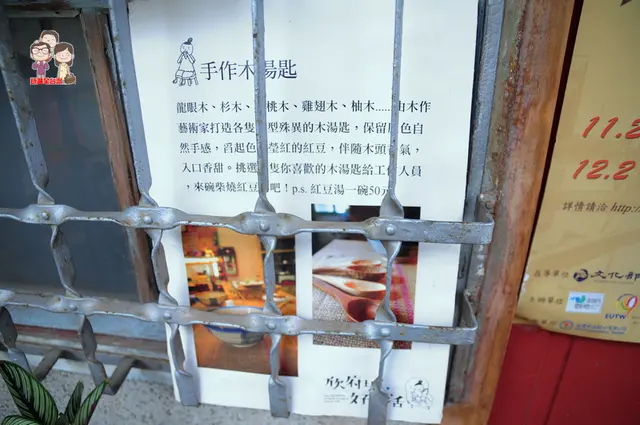 手作木湯匙
龍眼木、杉木、桃木、雞翅木、柚木……由木作
藝術家打造各隻型殊異的木湯匙，保留原色自
然手感，舀起色瑩紅的紅豆，伴隨木頭氣，
入口香甜。挑選隻你喜歡的木湯匙給工作人員
，來碗柴燒紅豆湯吧！p.s. 紅豆湯一碗50元
11.2
12.2
詳情請洽 http:/
指導單位 文化部
主辦單位
EUPW